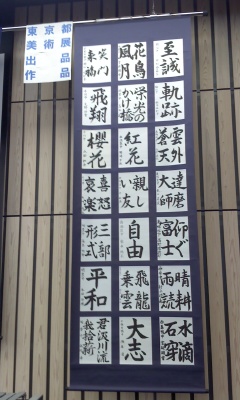 東京都
美術展
出品
作品
至誠
花鳥
風月
笑門
来福
軌跡
栄光の
かけ橋
飛翔
蒼天
雲外
紅花
櫻花
達磨
大師
親し
い友
喜怒
哀楽
仰ぐ
富士
自由
三部
形式
晴耕
雨読
飛龍
乗雲
平和
水滴
石穿
大志
君汲川流
我拾薪